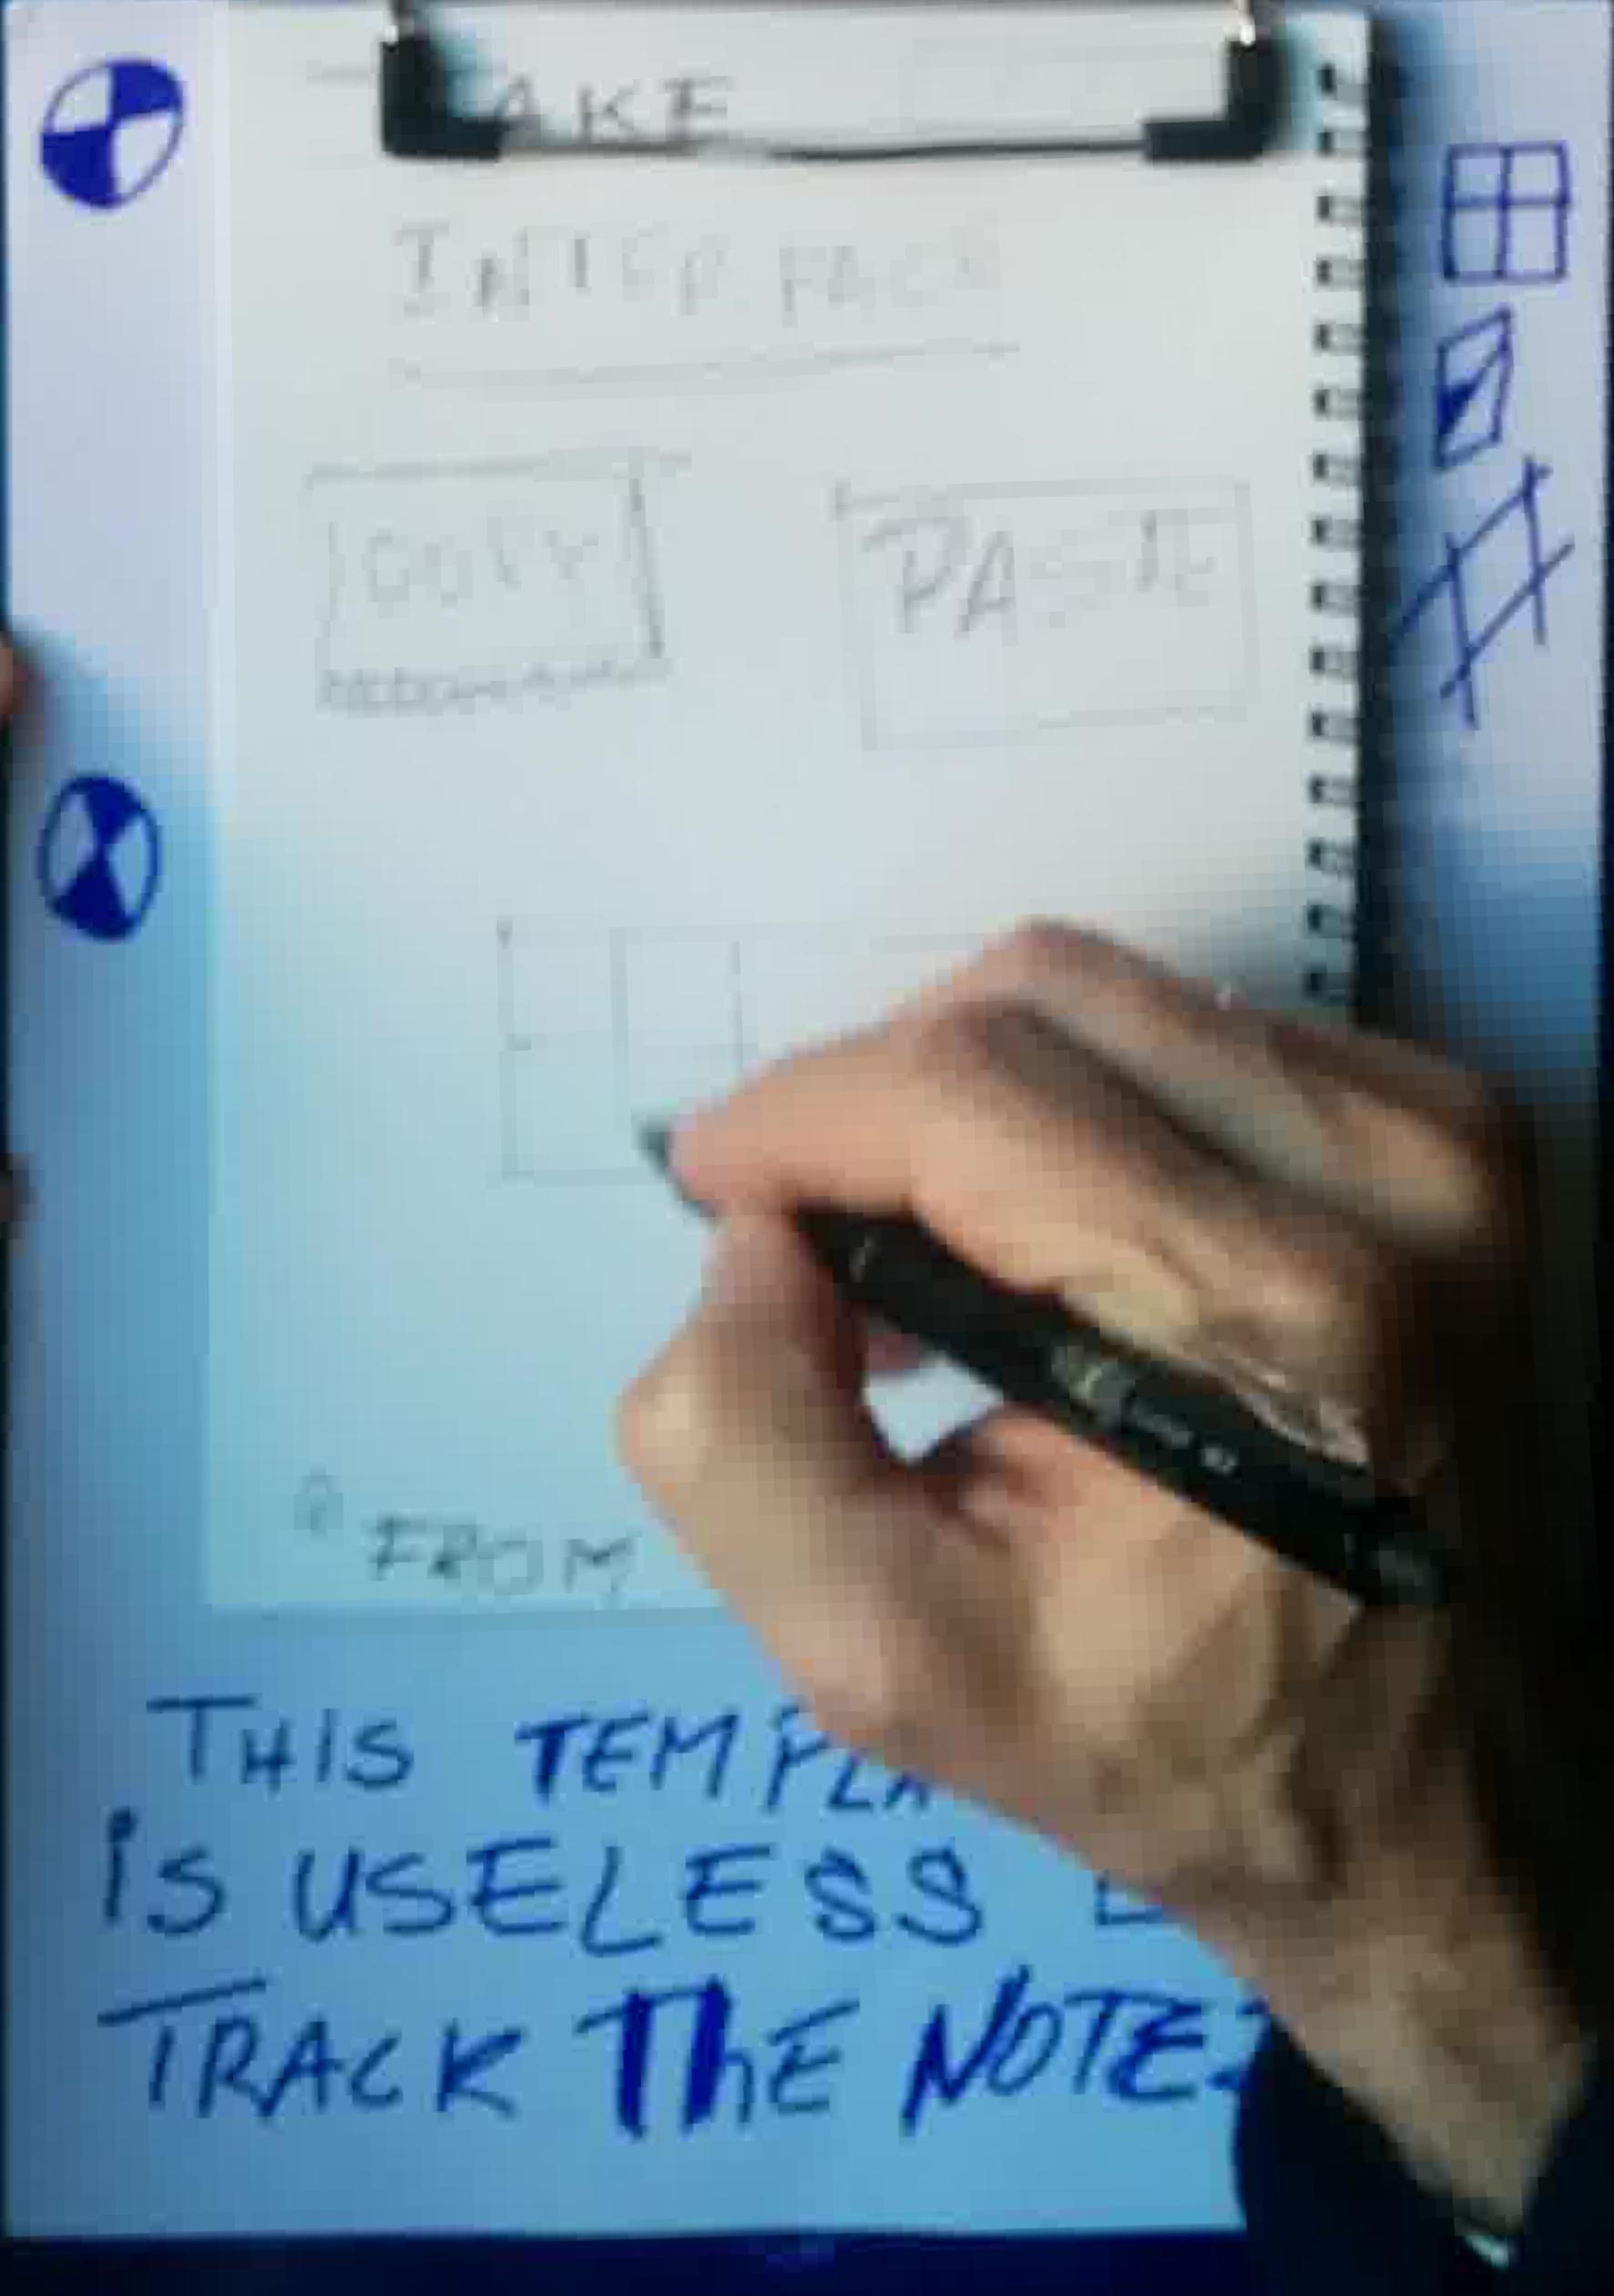 AKE
INTERFACE
COPY
PASTE
FROM
THIS TEMPLA
is USELESS
TRACK ThE NOTES